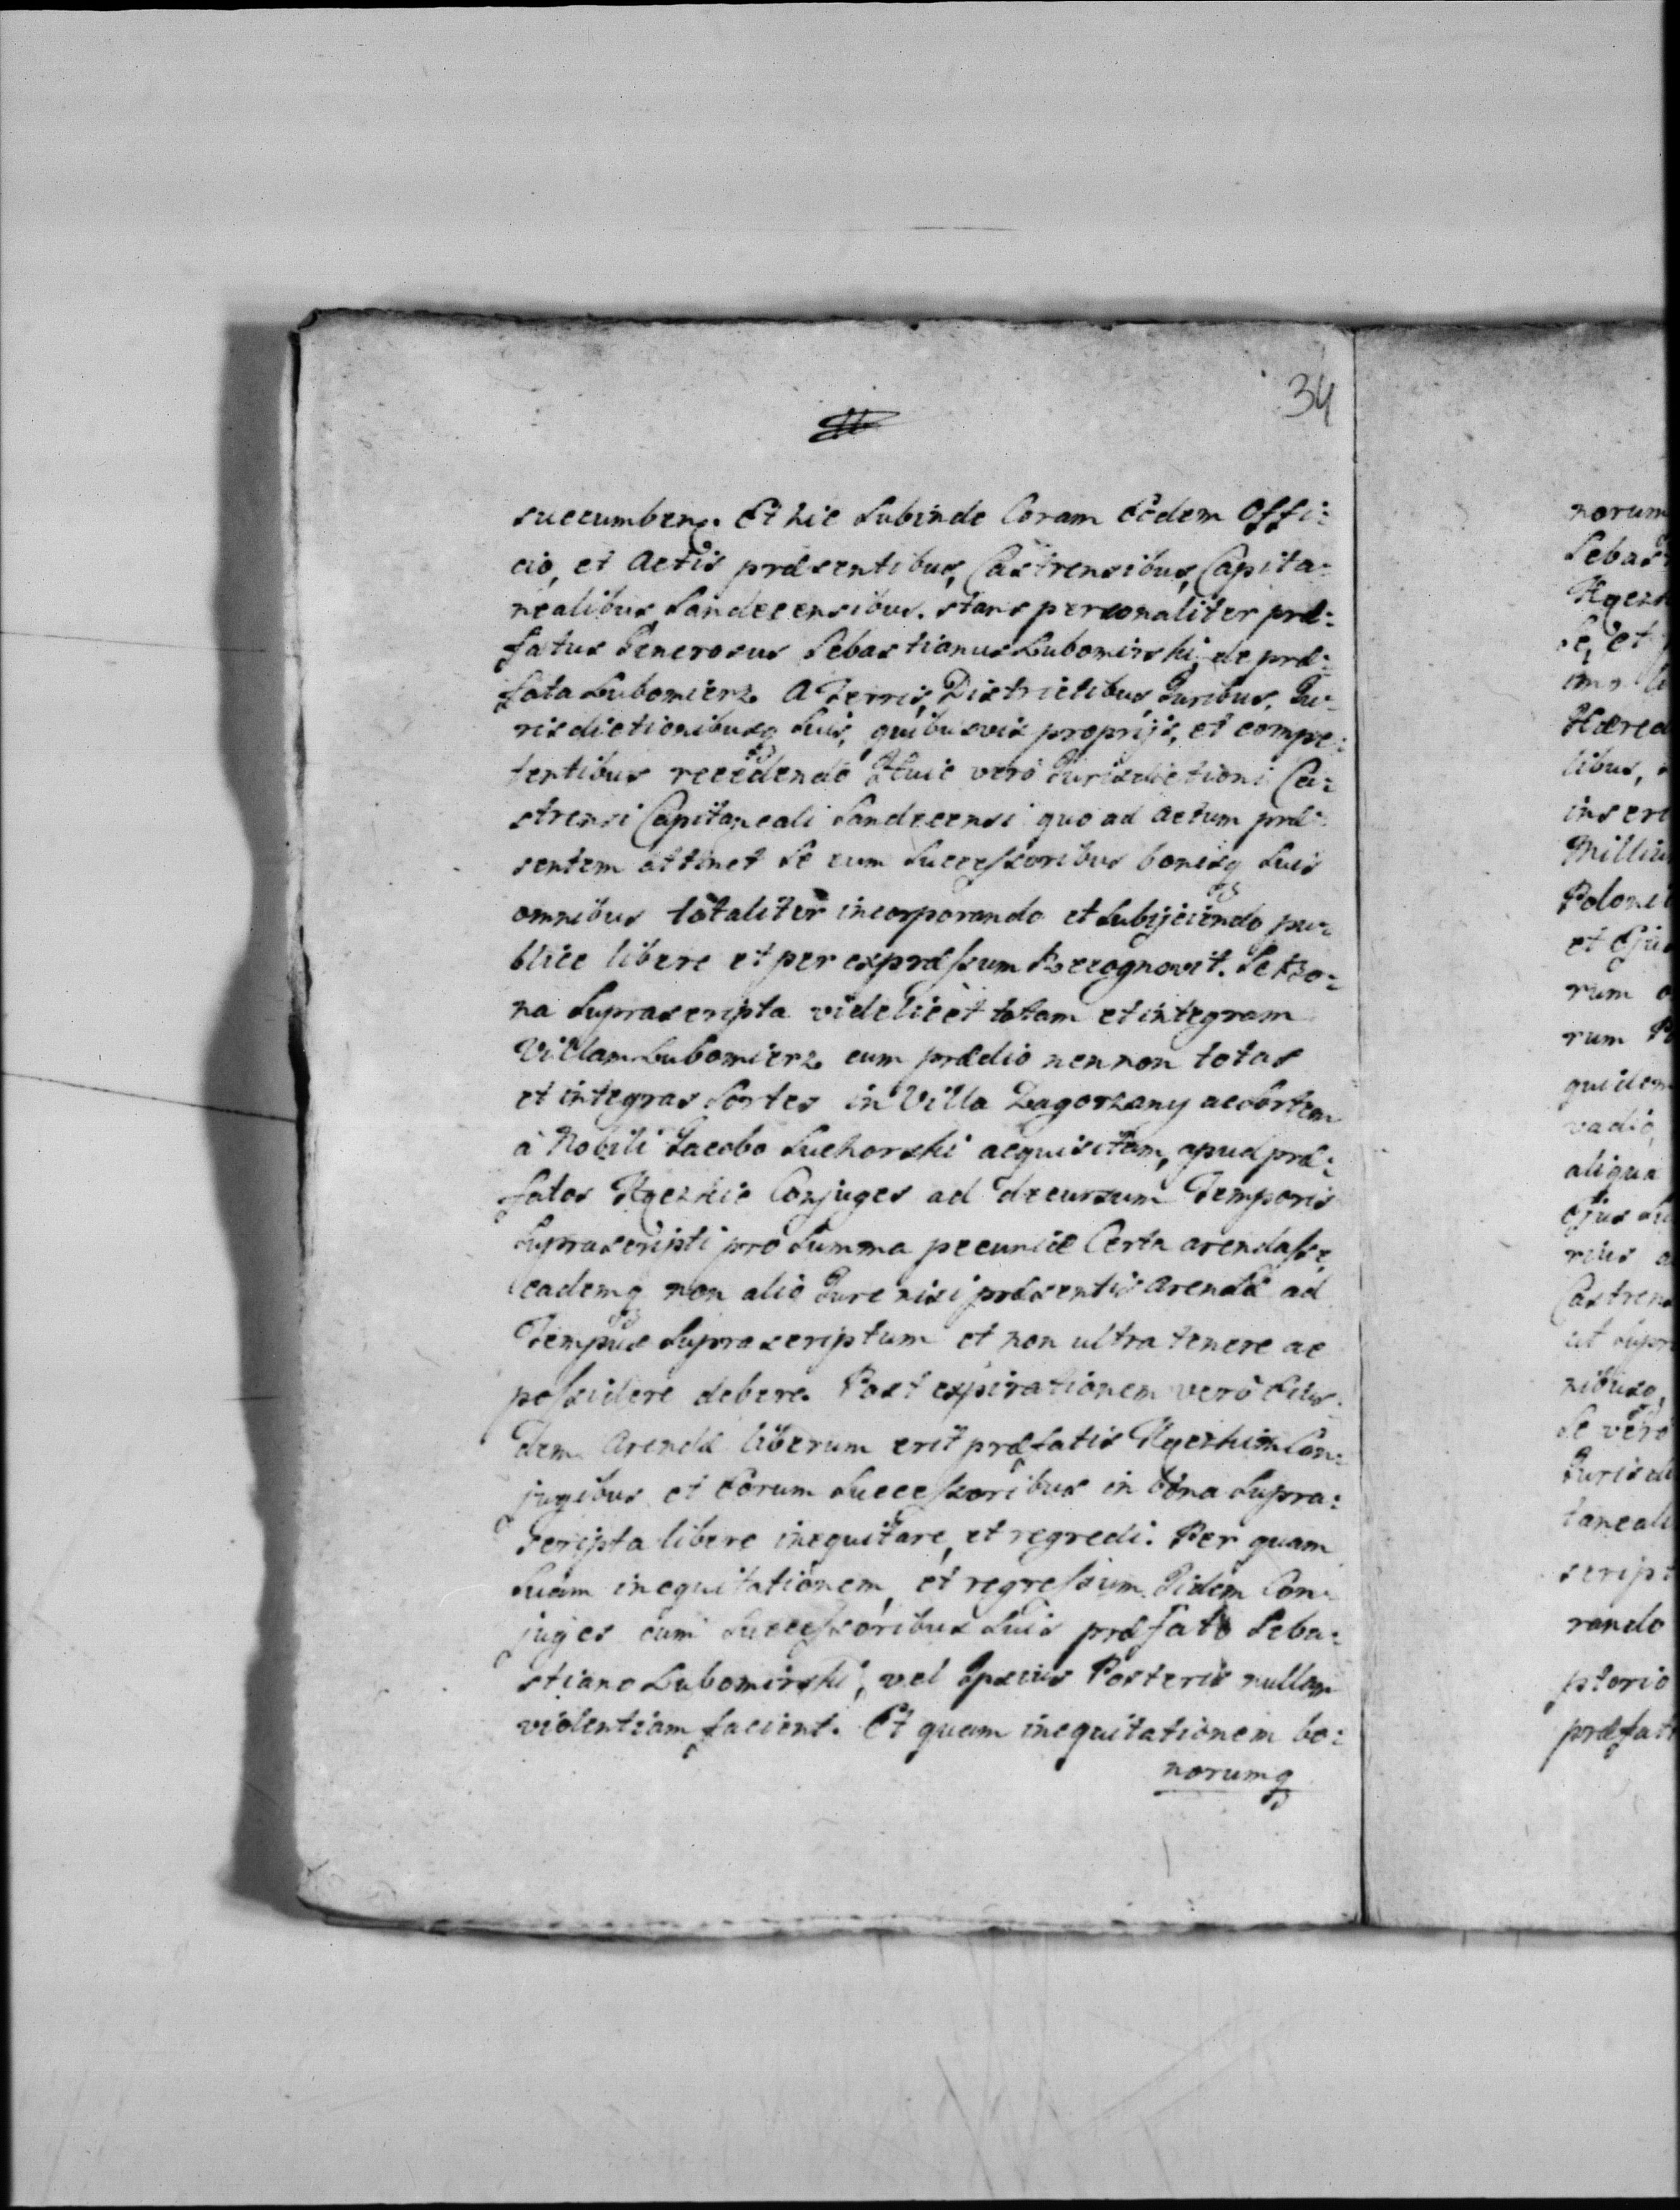 34
succumben. Et hic Subinde Coram Eôdem Offi:
cio, et Actis præsentibus, Castrensibus, Capita:
nealibus Sandecensibus. stans personaliter præ:
fatus Generosus Sebastianus Lubomirski, de præ:
fata Lubomierz A Terris, Districtibus, Juribus, Ju:
risdictionibusq suis, quibusvis proprijs, et compe:
tentibus recedendo Huic verò Jurisdictioni Ca:
strensi Capitaneali Sandecensi quo ad actum præ:
sentem attinet Se cum Successoribus bonisq Suis
omnibus totaliter incorporando et Subijciendo pu:
blice libere et per expræssum Recognovit. Se Bo:
na Suprascripta videlicet totam et integram
Villam Lubomierz cum prædio nennon totas
et integras Sortes in Villa Zagorzany ac Sortem
à Nobili Jacobo Suchorski acquisitam, apud præ:
fatos Conjuges ad decursum Temporis
Suprascripti pro Summa pecuniæ Certa arendasse,
eademq non alio Jure nisi præsentis Arendæ ad
Tempus Suprascriptum et non ultra tenere ac
possidere debere. Post expirationem verò Eius:
dem Arendæ liberum erit præfatis Con:
jugibus et Eorum Successoribus in bona Supra:
scripta libere inequitare, et regredi. Per quam
Suam inequitationem, et regressum Iidem Con:
juges cum Successoribus Suis præfato Seba:
stiano Lubomirski, vel Ipsius Posteris nullam
violentiam facient. Et quam inequitationem bo:
norumq
norum
Sebas
Se, et
Hæred
libus,
insere
Milliu
Poloni
et Eju
rum
rum
quidem
vadio,
aliqua
Ejus Su
rius
Castren
ut Supr
nibusq
Se verò
Jurisdi
taneali
script
rando
ptorio
præfat